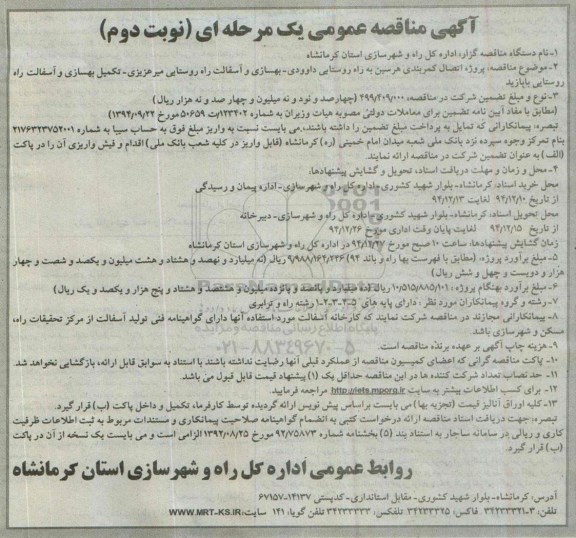 آگهی مناقصه عمومی یک مرحله ای (نوبت دوم)
۱-نام دستگاه مناقصه گزار: اداره کل راه و شهرسازی استان کرمانشاه
۲-موضوع مناقصه: پروژه اتصال کمربندی هرسین به راه روستایی داوودی-بهسازی و آسفالت راه روستایی میرعزیزی-تکمیل بهسازی و آسفالت راه
روستایی بابازید
۳-نوع و مبلغ تضمین شرکت در مناقصه: ۴۹۹/۴۰۹/۰۰۰ (چهارصد و نود و نه میلیون و چهار صد و نه هزار ریال)
(مطابق با مفاد آیین نامه تضمین برای معاملات دولتی مصوبه هیات وزیران به شماره ۱۲۳۴۰۲/ت ۵۰۶۵۹ مورخ ۱۳۹۴/۰۹/۲۲)
تبصره: پیمانکارانی که تمایل به پرداخت مبلغ تضمین را داشته باشند، می بایست نسبت به واریز مبلغ فوق به حساب سیبا به شماره ۲۱۷۶۳۲۳۷۵۲۰۰۱
بنام تمرکز وجوه سپرده نزد بانک ملی شعبه میدان امام خمینی (ره) کرمانشاه (قابل واریز در کلیه شعب بانک ملی) اقدام و فیش واریزی آن را در پاکت
(الف) به عنوان تضمین شرکت در مناقصه ارائه نمایند.
۴-محل و زمان و مهلت دریافت اسناد، تحویل و گشایش پیشنهادها:
محل خرید اسناد: کرمانشاه-بلوار شهید کشوری-اداره کل راه و شهرسازی-اداره پیمان و رسیدگی
از تاریخ ۹۴/۱۲/۱۰ لغایت ۹۴/۱۲/۱۳
محل تحویل اسناد: کرمانشاه-بلوار شهید کشوری-اداره کل راه و شهرسازی-دبیرخانه
از تاریخ ۹۴/۱۲/۱۵ لغایت پایان وقت اداری مورخ ۹۴/۱۲/۲۶
زمان گشایش پیشنهادها: ساعت ۱۰ صبح مورخ ۹۴/۱۲/۲۷ در اداره کل راه و شهرسازی استان کرمانشاه
۵-مبلغ برآورد پروژه: (مطابق با فهرست بها راه و باند ۹۴) ۹/۹۸۸/۱۶۴/۲۳۶ ریال (نه میلیارد و نهصد و هشتاد و هشت میلیون و یکصد و شصت و چهار
هزار و دویست و چهل و شش ریال)
۶-مبلغ برآورد بهنگام پروژه: ۱۰/۵۱۵/۸۸۵/۱۰۱ ریال (ده میلیارد و پانصد و پانزده میلیون و هشتصد و هشتاد و پنج هزار و یکصد و یک ریال)
۷-رشته و گروه پیمانکاران مورد نظر: دارای پایه های ۵-۴-۳-۲-۱ رشته راه و ترابری
۸-پیمانکارانی مجازند در مناقصه شرکت نمایند که کارخانه آسفالت مورد استفاده آنها دارای گواهینامه فنی تولید آسفالت از مرکز تحقیقات راه،
مسکن و شهرسازی باشد.
۹-هزینه چاپ آگهی بر عهده برنده مناقصه است.
۱۰-پاکت مناقصه گرانی که اعضای کمیسیون مناقصه از عملکرد قبلی آنها رضایت نداشته باشند با استناد به سوابق قابل ارائه، بازگشایی نخواهد شد.
۱۱-حد نصاب تعداد شرکت کننده ها در این مناقصه حداقل یک (۱) پیشنهاد قیمت قابل قبول می باشد.
۱۲-برای کسب اطلاعات بیشتر به سایت http://iets.mporg.ir مراجعه فرمایید.
۱۳-کلیه اوراق آنالیز قیمت (تجزیه بها) می بایست براساس پیش نویس ارائه گردیده توسط کارفرما، تکمیل و داخل پاکت (ب) قرار گیرد.
تبصره: جهت دریافت اسناد مناقصه ارائه درخواست کتبی به انضمام گواهینامه صلاحیت پیمانکاری و مستندات مربوط به ثبت اطلاعات ظرفیت
کاری و ریالی در سامانه ساجار به استناد بند (۵) بخشنامه شماره ۹۲/۷۵۸۷۳ مورخ ۱۳۹۲/۰۸/۲۵ الزامی است و می بایست یک نسخه از آن در پاکت
(ب) قرار گیرد.
روابط عمومی اداره کل راه و شهرسازی استان کرمانشاه
آدرس: کرمانشاه-بلوار شهید کشوری-مقابل استانداری-کدپستی ۱۴۱۳۷-۶۷۱۵۷
تلفن: ۳-۳۴۲۳۳۳۲۱ فاکس: ۳۴۲۳۳۳۲۵ تلفکس: ۳۴۲۳۳۳۳۳ تلفن گویا: ۱۴۱ سایت: WWW.MRT-KS.IR
پایگاه اطلاع رسانی مناقصه و مزایده
۰۲۱-۸۸۳۴۹۶۷۰-۵